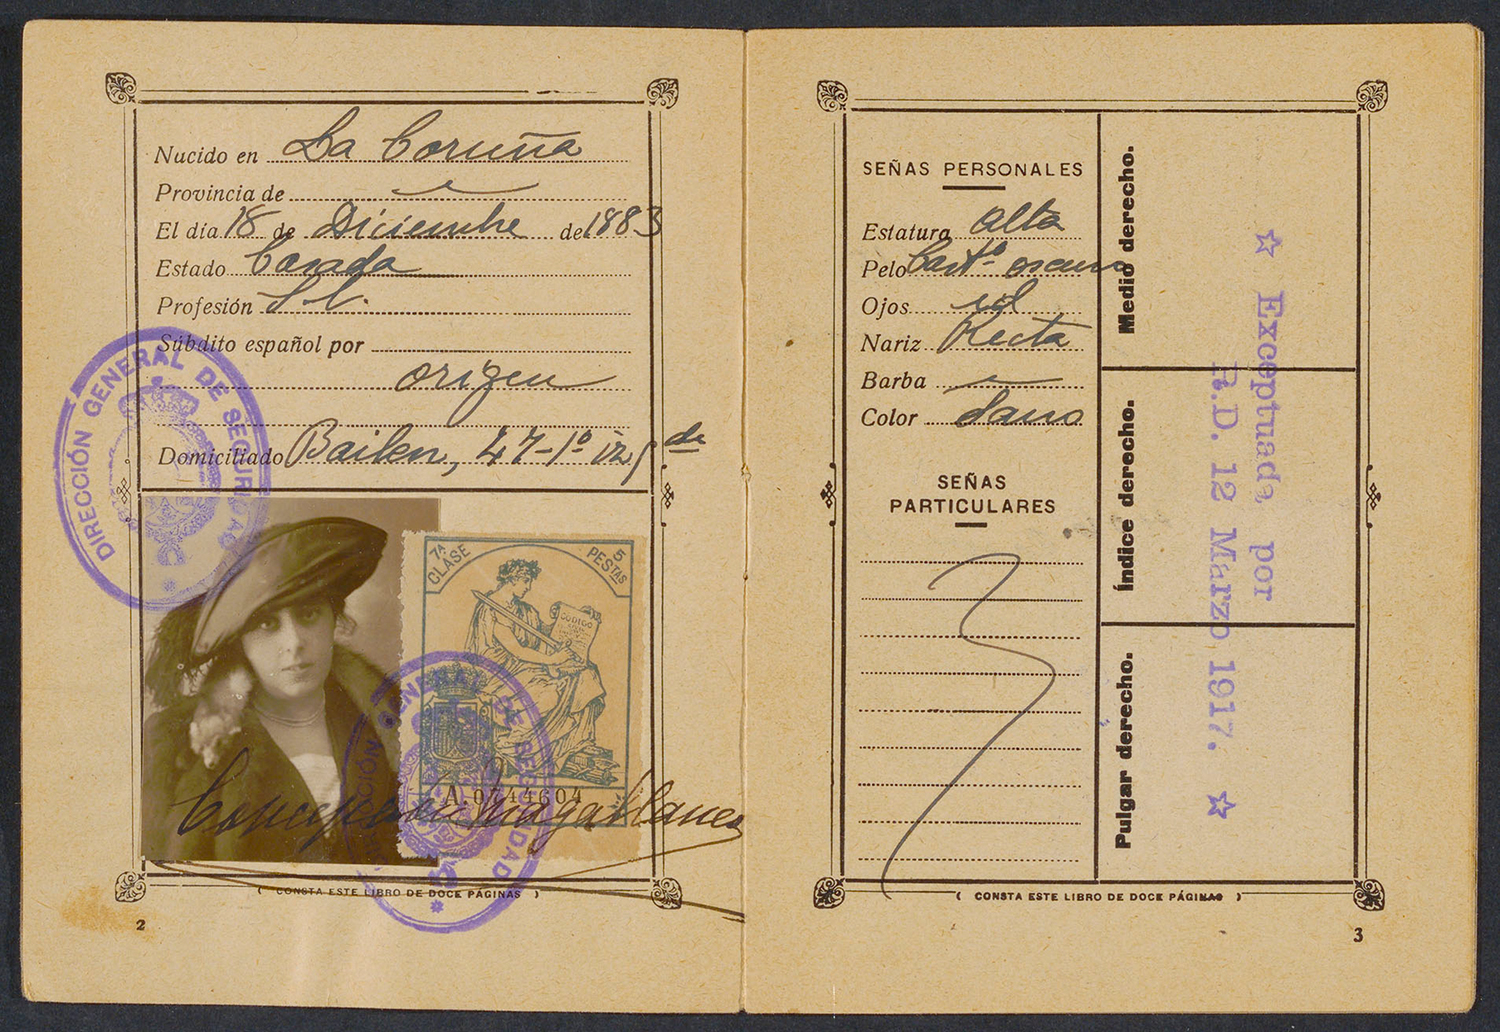 Nacido en La Coruña
Provincia de
El día 18 de Diciembre de 1883
Estado Casada
Profesión S. l.
Súbdito español por
origen
Domiciliado Bailen, 47-1º izqda
DIRECCIÓN GENERAL DE SEGURIDAD
7ª CLASE
5 PESTAS
CODIGO
A.0744604
DIRECCIÓN GENERAL DE SEGURIDAD
Concepcion Magallanes
( CONSTA ESTE LIBRO DE DOCE PÁGINAS )
2
SEÑAS PERSONALES
Estatura alta
Pelo Castº oscuro
Ojos id
Nariz Recta
Barba
Color sano
SEÑAS
PARTICULARES
Medio derecho.
Índice derocho.
Pulgar derecho.
☆ Exceptuada, por
R.D. 12 Marzo 1917. ☆
( CONSTA ESTE LIBRO DE DOCE PÁGINAS )
3